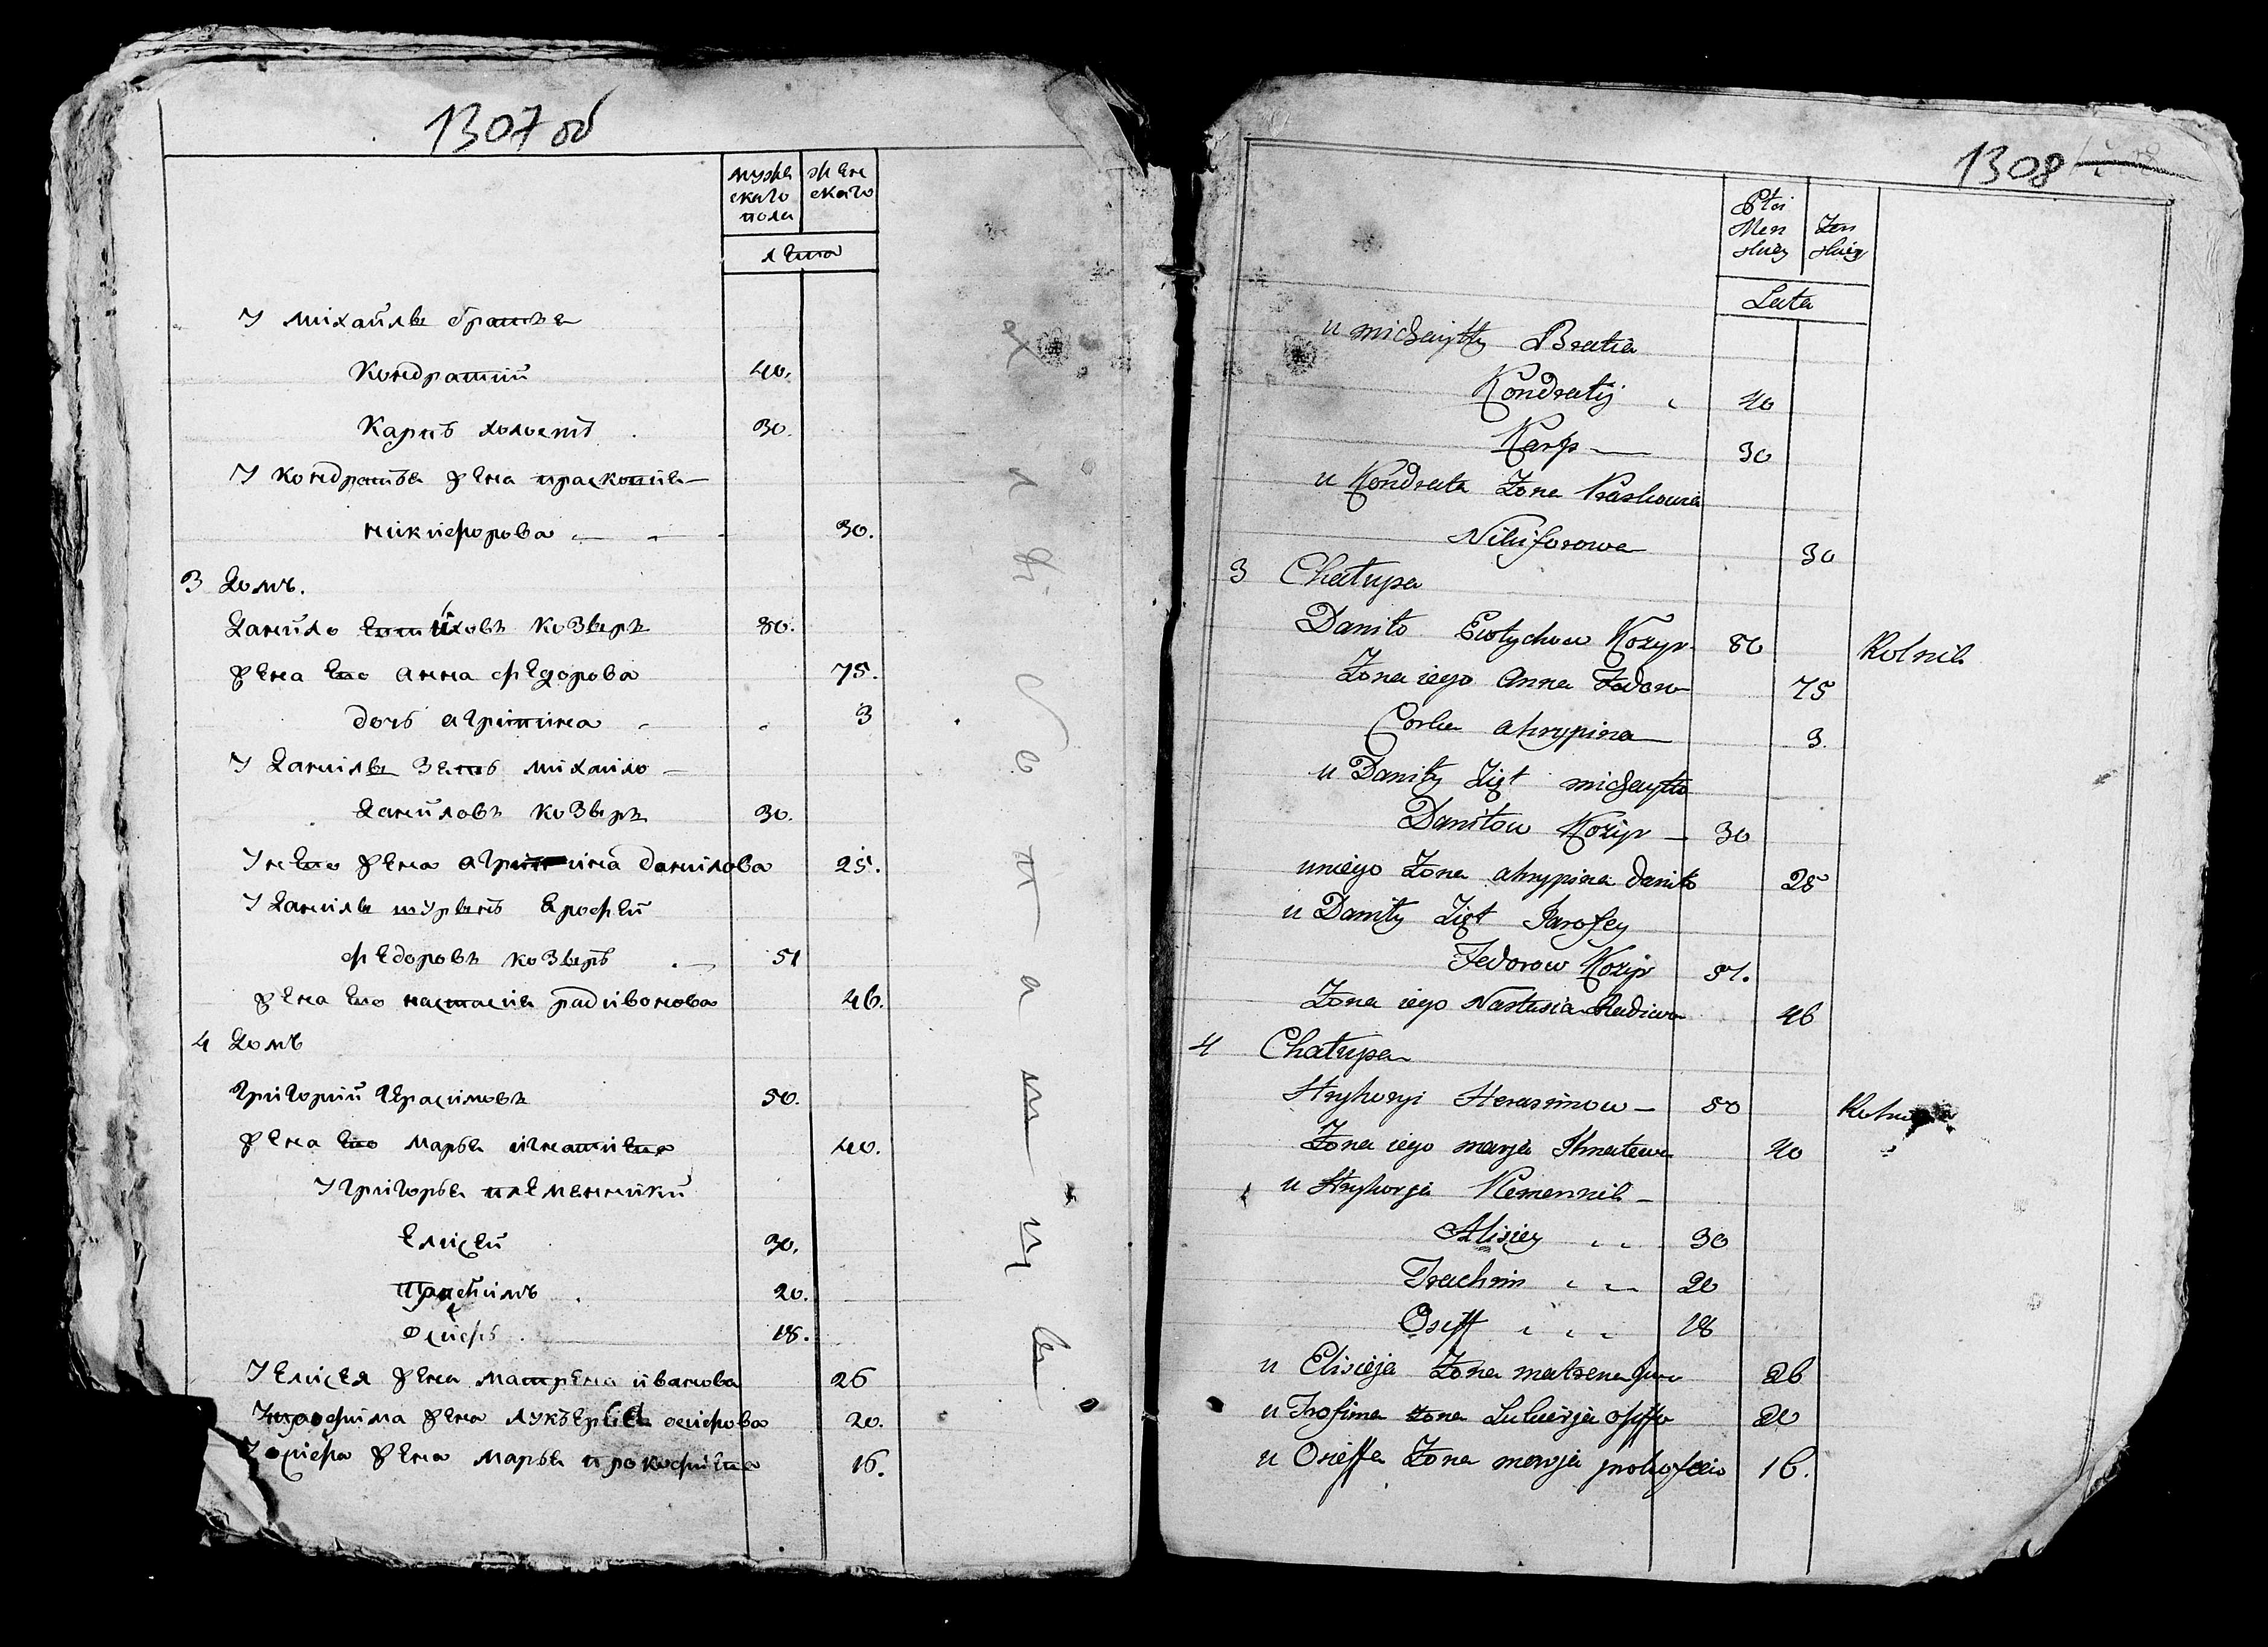 1307 об
мужескаго пола
женскаго
лета
У михайлы братья
Кондратий 40.
Карпъ холостъ 30.
У кондратья жена прасковия
никифорова 30.
3 Домъ.
Данило Евтиховъ козыръ 80.
жена Ево анна федорова 75.
дочь агрипина 3
У Данилы зеть михайло
Даниловъ козыръ 30.
У нево жена агрипина данилова 25.
У Данилы шурынъ Ерофей
федоровъ козыръ 51
жена Ево настасия радивонова 46.
4 Домъ
Григорий Герасимовъ 50.
жена Ево марья игнатиева 40.
У григорья племянники
Елисей 30.
трофимъ 20.
осифъ 18.
У Елисея жена матрена иванова 26
У трофима жена лукерия осифова 20.
У осифа жена марья прокофиева 16.
1308
Płci Menskiey
Żenskiey
Lata
u michayły Bratia
Kondratij 40
Karp 30
u Kondrata Żona Praskowia
Nikiforowa 30
3 Chałupa
Daniło Ewtychow Kozyr 80 Rolnik
Żona iego Anna Fedorow 75
Corka ahrypina 3.
u Daniły Zięt michayło
Daniłow Kozyr 30
u niego Żona ahrypina daniło 25
u Daniły Zięt Jarofey
Fedorow Kozyr 51.
Żona iego Nastasia Radiwon 46
4 Chałupa
Hryhoryi Herasimow 50 Rolnik
Żona iego marja Ihnatewa 40
u Hryhorja Plemennik
Alisiey 30
Trachim 20
Osiff 18
u Elisieja Żona matrena Iwa 26
u Trofima żona Lukierja osiffo 20
u Osieffa Żona marja prokofeio 16.